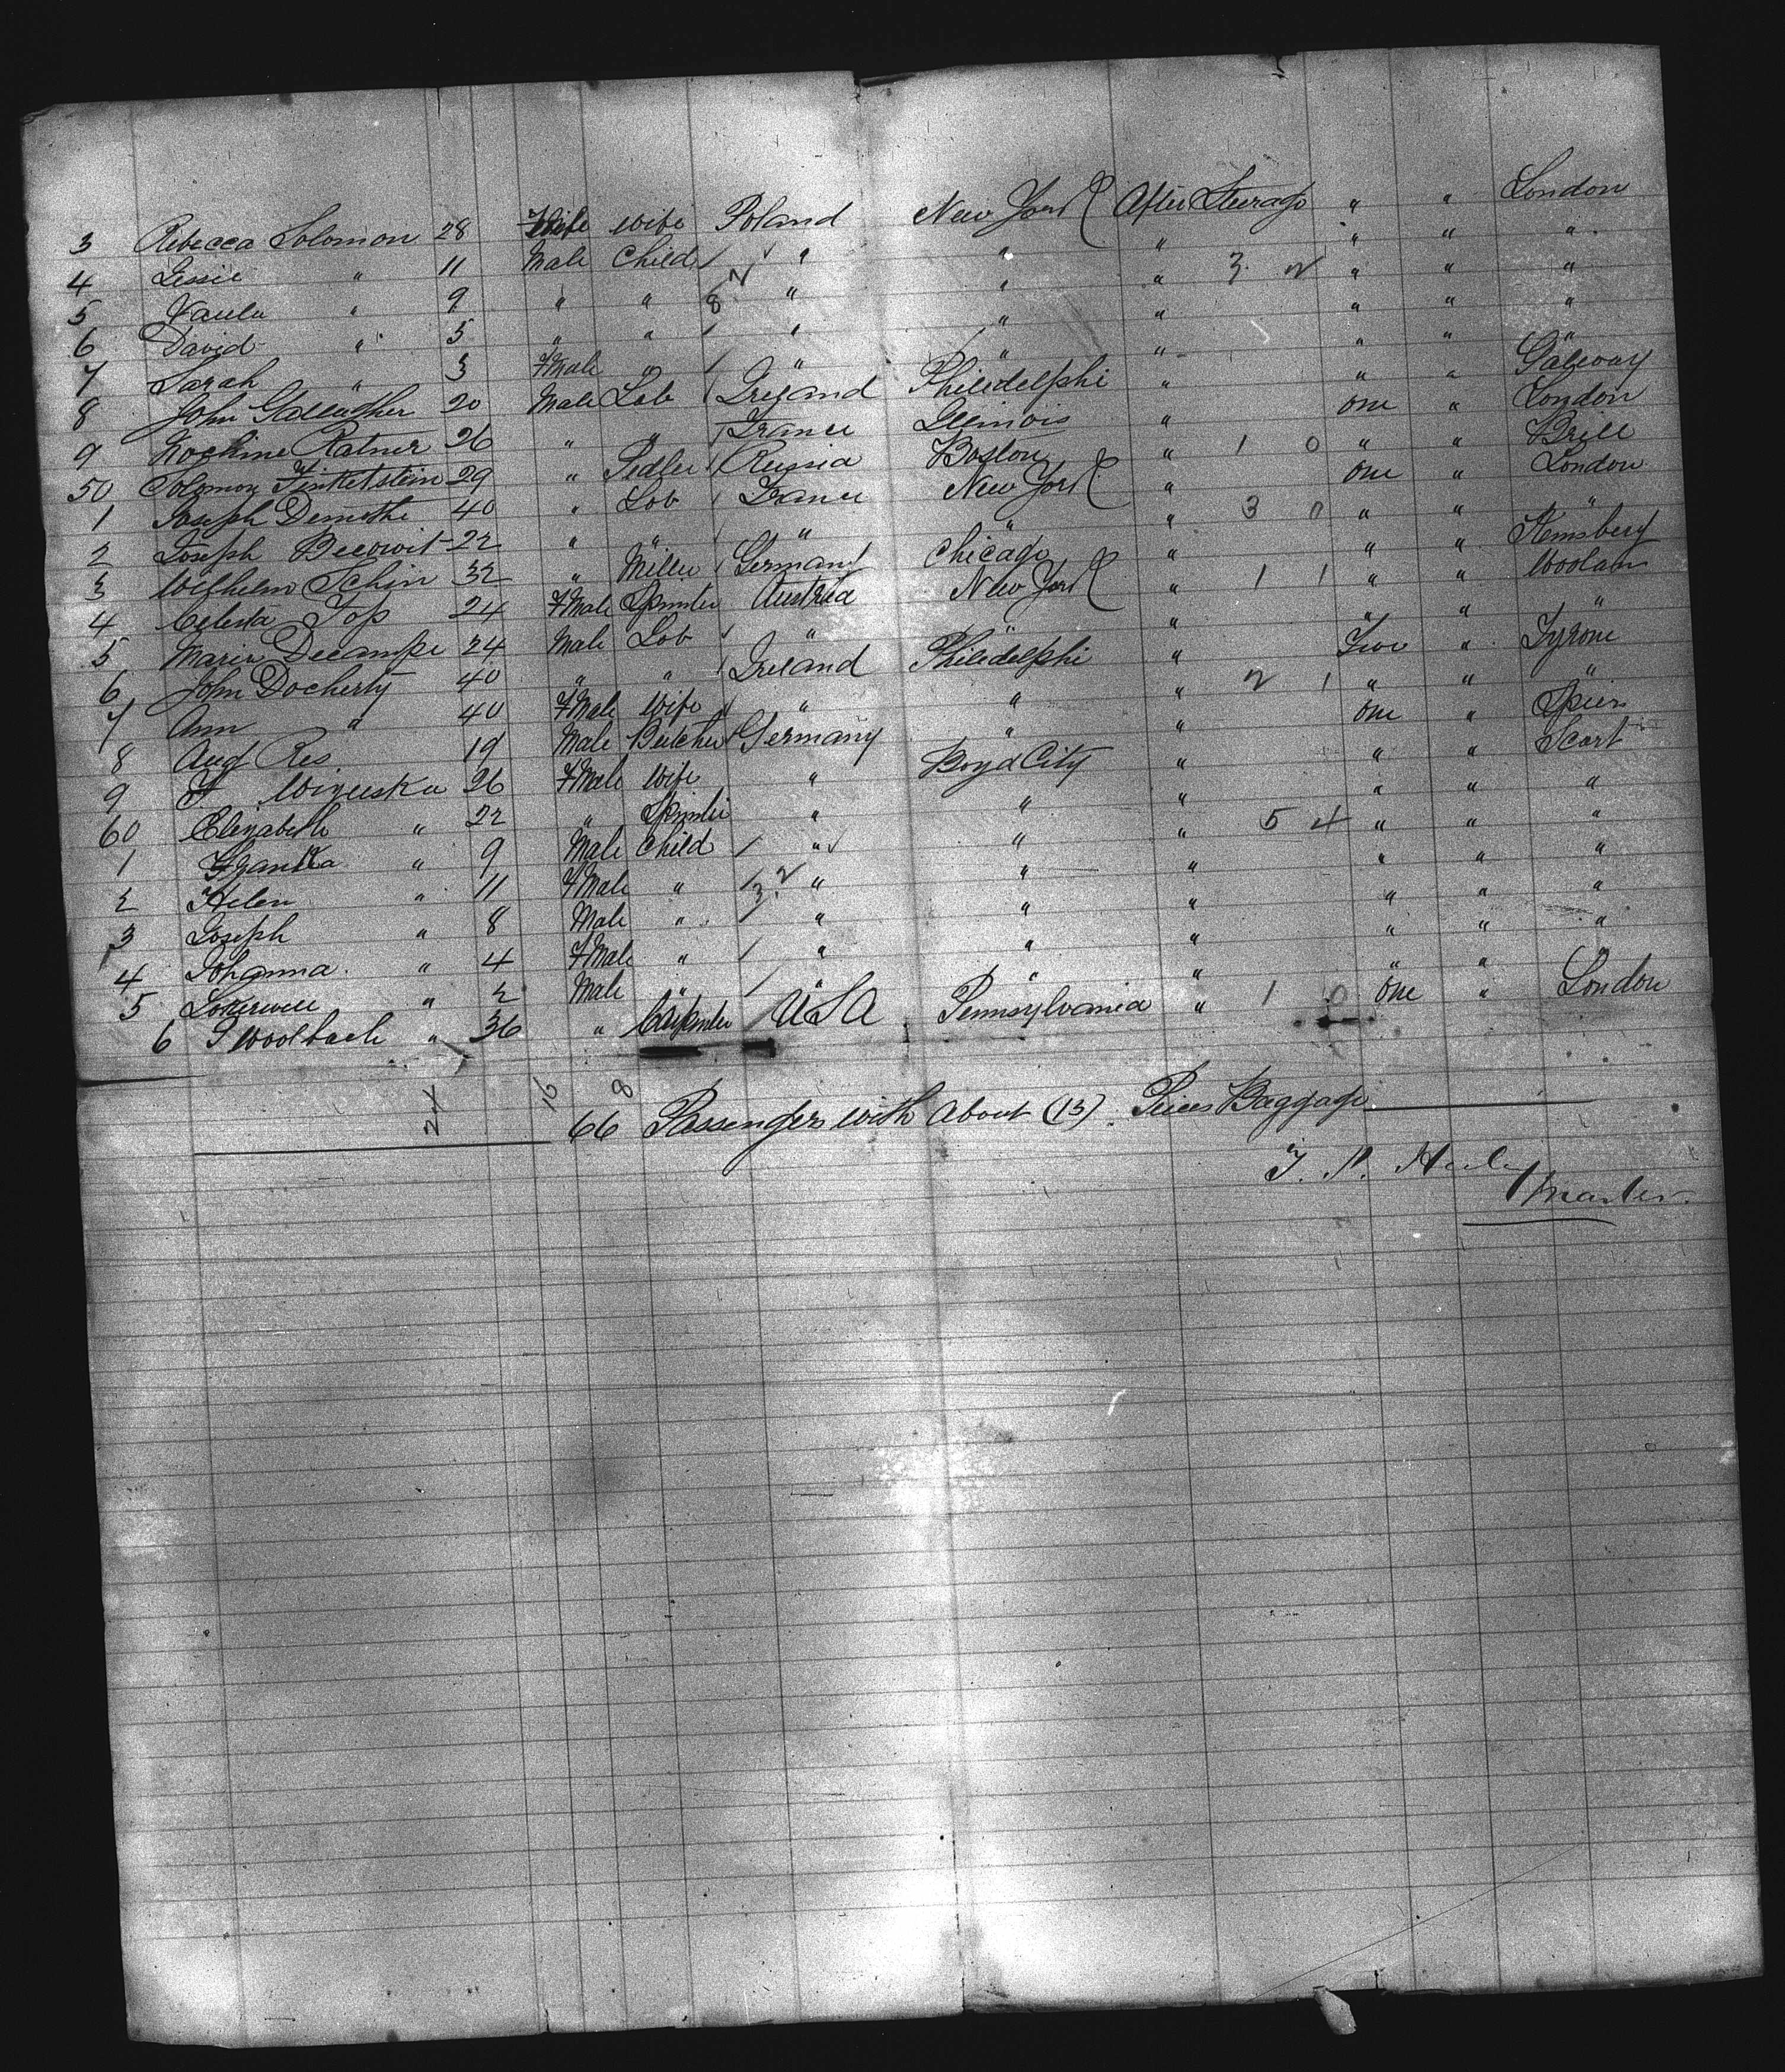 3 Rebecca Solomon 28 Wife Wife Poland New York After Steerage " " London
4 Lessie " 11 Male Child " " " " " "
5 Paula " 9 " " " " " 3 2 " " "
6 David " 5 " " " " " " " "
7 Sarah " 3 FMale " " " " " " "
8 John Gallagher 20 Male Lab Ireland Philidelphi " " " Galway
9 Ratner 26 " " France Illinois " one " London
50 Solomon Finkelstein 29 " Pedler Russia Boston " 1 0 " " Brill
1 Joseph Demothe 40 " Lob France New York " one " London
2 Joseph Becowit 22 " " " " " 3 0 " " "
3 Wilhelm Schin 32 " Miller Germany Chicago " " " Hemsberg
4 Celesta Jop 24 FMale Spinster Austria New York " 1 1 " " Woolam
5 Maria Decampe 24 Male Lob " " " " " "
6 John Docherty 40 " " Ireland Philidelphi " Two " Tyrone
7 Ann " 40 FMale Wife " " " 2 1 " " "
8 Aug Res 19 Male Butcher Germany " " one " Spier
9 26 FMale Wife " Boyd City " " " Scart
60 Elizabeth " 22 " Spinster " " " " " "
1 Franka " 9 Male Child " " " 5 4 " " "
2 Helen " 11 FMale " " " " " " "
3 Joseph " 8 Male " " " " " " "
4 Johanna " 4 FMale " " " " " " "
5 " 2 Male " " " " " " "
6 J Woolbach " 36 " Carpenter USA Pennsylvania " 1 0 one " London
24 16 8
66 Passengers with about (13) Pieces Baggage
Master